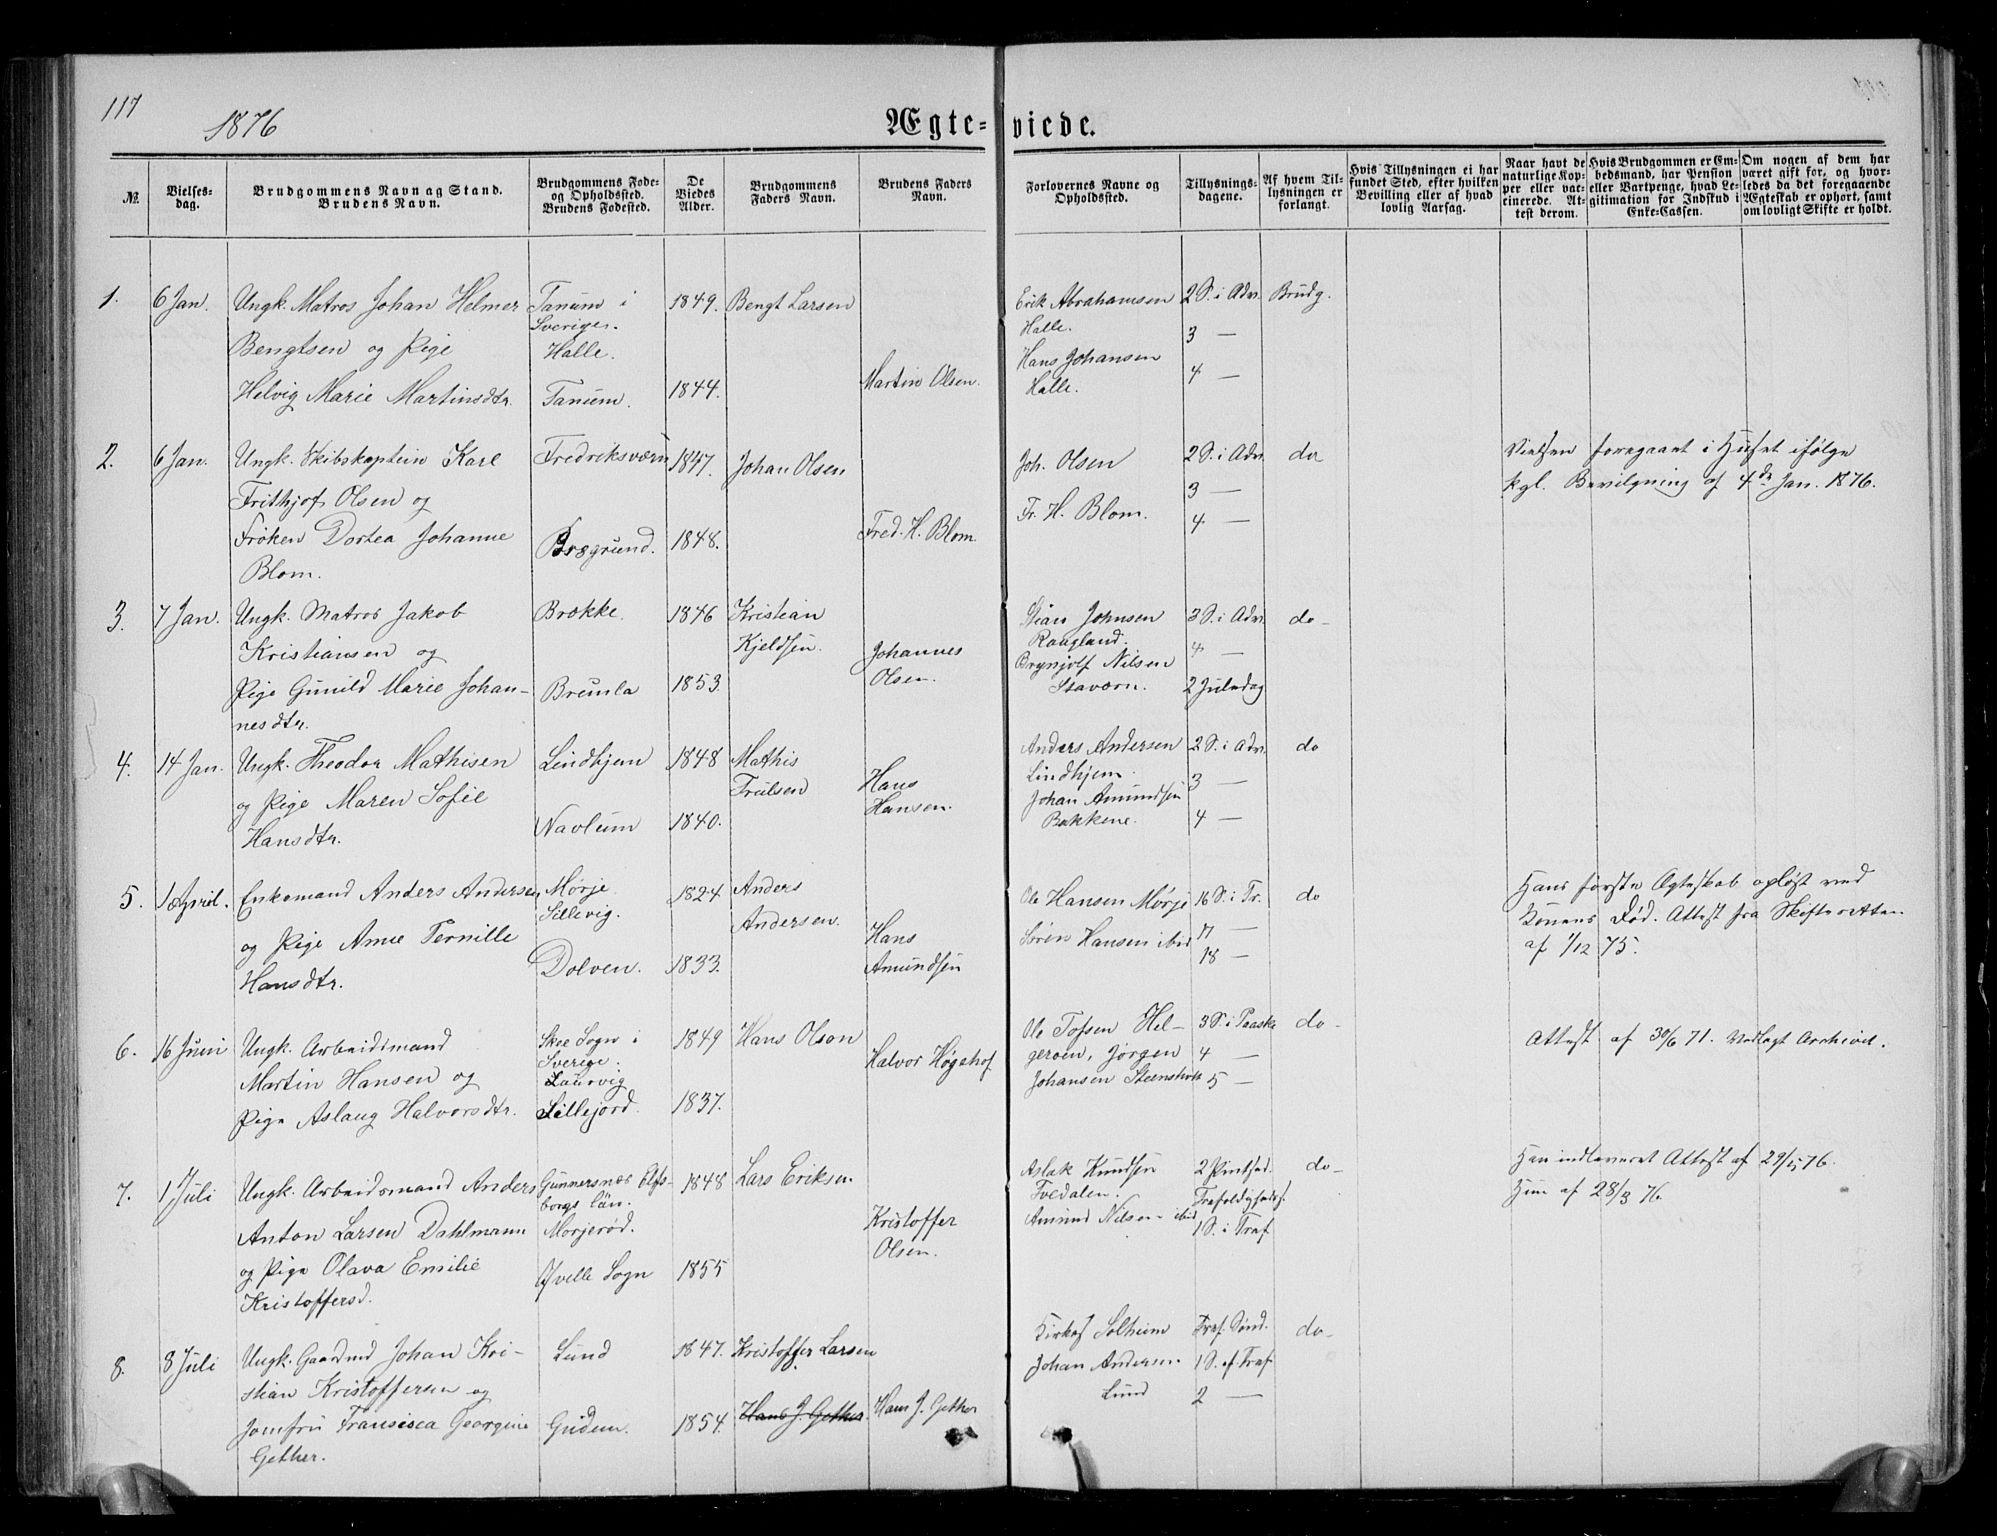 117
1876
Ægte-viede.
№.
Vielses-
dag.
Brudgommens Navn ag Stand.
Brudens Navn.
Brudgommens Føde-
og Opholdssted.
Brudens Fødested.
De
Viedes
Alder.
Brudgommens
Faders Navn.
Brudens Faders
Navn.
Forlovernes Navne og
Opholdssted.
Tillysnings-
dagene.
Af hvem Til-
lysningen er
forlangt.
Hvis Tillysningen ei har
fundet Sted, efter hvilken
Bevilling eller af hvad
lovlig Aarsag.
Naar havt de
naturlige Kop-
per eller vac-
cinerede. At-
test derom.
Hvis Brudgommen er Em-
bedsmand, har Pension
eller Vartpenge, hvad Le-
gitimation for Indskud i
Enke-Cassen.
Om nogen af dem har
været gift før, og hvor-
ledes da det foregaaende
Ægteskab er ophørt, samt
om lovligt Skifte er holdt.
1.
6 Jan.
Ungk. Matros Johan Helmer
Bengtsen og Pige
Helvig Marie Martinsdtr.
Tanum i
Sverige.
Halle.
Tanum.
1849.
1844.
Bengt Larsen
Martin Olsen.
Erik Abrahamsen
Halle.
Hans Johansen
Halle.
2 S. i Adv.
3 —
4 —
Brudg.
2.
6 Jan.
Ungk. Skibskaptein Karl
Frithjof Olsen og
Frøken Dortea Johanne
Blom.
Fredriksværn
Brsgrund.
1847.
1848.
Johan Olsen
Fred. H. Blom.
Joh. Olsen
Fr. H. Blom.
2 S. i Adv.
3 —
4 —
do
Vielsen foregaaet i Huset ifølge
kgl. Bevilgning af 4de Jan. 1876.
3.
7 Jan.
Ungk. Matros Jakob
Kristiansen og
Pige Gunild Marie Johan-
nesdtr.
Brække.
Brunla
1846
1853.
Kristian
Kjeldsen.
Johannes
Olsen.
Stian Johnsen
Raagland.
Brynjolf Nilsen
Staværn.
3 S. i Adv.
4 —
2 Juledag
do-
4.
14 Jan.
Ungk. Theodor Mathisen
og Pige Maren Sofie
Hansdtr.
Lindhjem
Navlum
1848
1840.
Mathis
Trulsen
Hans
Hansen.
Anders Andersen
Lindhjem.
Johan Amundsen
Bakkene.
2 S. i Adv.
3 —
4 —
do
5.
1 April.
Enkemand Anders Andersen
og Pige Anne Pernille
Hansdtr.
Mørje
Sillevig.
Dolven.
1824
1833.
Anders
Andersen.
Hans
Amundsen
Ole Hansen Mørje
Søren Hansen ibid
16 S. i Tr.
17 —
18 —
do
Hans første Ægteskab opløst ved
Konens Død. Attest fra Skifteretten
af 1/12 75.
6.
16 Juni
Ungk. Arbeidsmand
Martin Hansen og
Pige Aslaug Halvorsdtr.
Skee Sogn i
Sverige.
Laurvig
Sillejord.
1849
1837.
Hans Olson
Halvor Høgehof
Ole Tofsen Hel-
geroen, Jørgen
Johansen Steensholt
3 S. i Paaske
4 —
5 —
do-
Attest af 30/6 71. Vedlagt Archivet.
7.
1 Juli
Ungk. Arbeidsmand Anders
Anton Larsen Dahlmann
og Pige Olava Emilie
Kristoffersd.
Gunnersnæs Elfs-
borgs län.
Morjerød.
Sogn
1848
1855
Lars Eriksen
Kristoffer
Olsen.
Aslak Knudsen
Tvedalen.
Amund Nilsen ibid
2 Pintsed.
Trefoldighedsf.
1 S. i Tref
do-
Han indleveret Attest af 29/5 76.
Hun af 28/3 76.
8.
8 Juli
Ungk. Gaardmd Johan Kri-
stian Kristoffersen og
Jomfru Fransisca Georgine
Gether.
Lund
Gudem.
1847.
1854.
Kristoffer Larsen
Hans J. Gether.
Hans J. Gether
Kirkes. Solheim
Johan Andersen
Lund
Tref. Sønd.
1 S. ef. Tref
2 —
do-